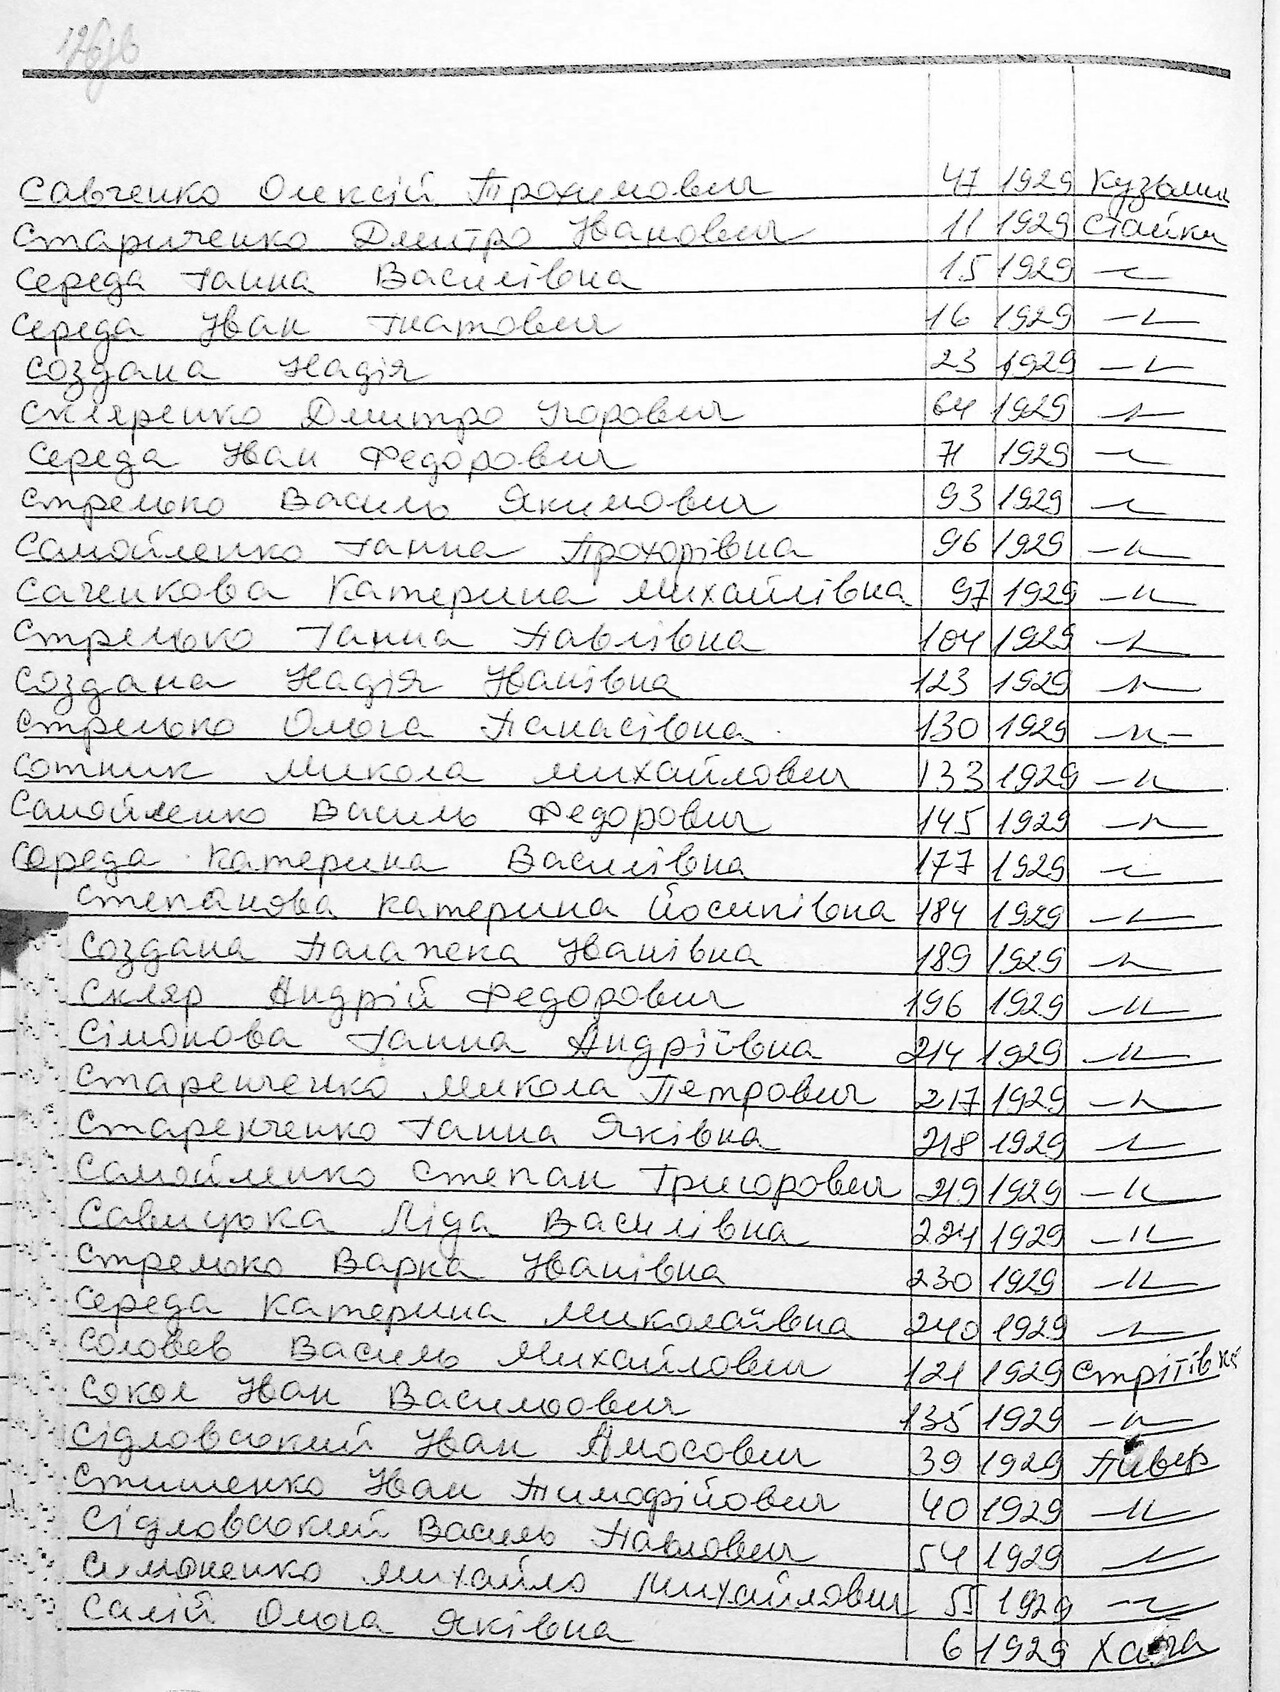 Савченко Олексій Трохимович 47 1929 Кузьмин
Стариченко Дмитро Іванович 11 1929 Стайки
Середа Ганна Василівна 15 1929 -"-
Середа Іван Гнатович 16 1929 -"-
Создана Надія 23 1929 -"-
Скляренко Дмитро Ігорович 64 1929 -"-
Середа Іван Федорович 71 1929 -"-
Стрелько Василь Якимович 93 1929 -"-
Самойленко Ганна Прохорівна 96 1929 -"-
Саченкова Катерина Михайлівна 97 1929 -"-
Стрелько Ганна Павлівна 104 1929 -"-
Создана Надія Іванівна 123 1929 -"-
Стрелько Ольга Панасівна 130 1929 -"-
Сотник Микола Михайлович 133 1929 -"-
Самойленко Василь Федорович 145 1929 -"-
Середа Катерина Василівна 177 1929 -"-
Степанова Катерина Йосипівна 184 1929 -"-
Создана Палажка Іванівна 189 1929 -"-
Скляр Андрій Федорович 196 1929 -"-
Сімонова Ганна Андріївна 214 1929 -"-
Старенченко Микола Петрович 217 1929 -"-
Старенченко Ганна Яківна 218 1929 -"-
Самойленко Степан Григорович 219 1929 -"-
Савицька Ліда Василівна 1929 -"-
Стрелько Варка Іванівна 230 1929 -"-
Середа Катерина Миколаївна 240 1929 -"-
Соловев Василь Михайлович 121 1929 Стрітівка
Сокол Іван Васильович 135 1929 -"-
Сідловський Іван Амосович 39 1929 Півці
Стишенко Іван Тимофійович 40 1929 -"-
Сідловський Василь Павлович 54 1929 -"-
Симоненко Михайло Михайлович 55 1929 -"-
Салій Ольга Яківна 6 1929